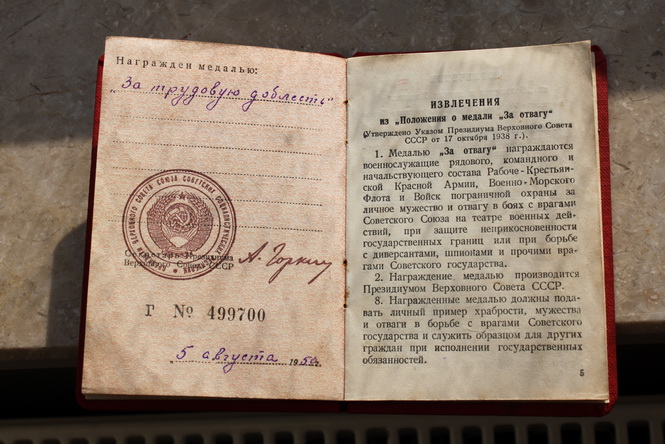 Награжден медалью:
„За трудовую доблесть"
Секретарь Президиума
Верховного Совета СССР
А. Горкин
Г № 499700
5 августа 195
ИЗВЛЕЧЕНИЯ
из „Положения о медали „За отвагу"
(Утверждено Указом Президиума Верховного Совета
СССР от 17 октября 1938 г.).
1. Медалью „За отвагу" награждаются
военнослужащие рядового, командного и
начальствующего состава Рабоче-Крестьян-
ской Красной Армии, Военно-Морского
Флота и Войск пограничной охраны за
личное мужество и отвагу в боях с врагами
Советского Союза на театре военных дей-
ствий, при защите неприкосновенности
государственных границ или при борьбе
с диверсантами, шпионами и прочими вра-
гами Советского государства.
2. Награждение медалью производится
Президиумом Верховного Совета СССР.
8. Награжденные медалью должны пода-
вать личный пример храбрости, мужества
и отваги в борьбе с врагами Советского
государства и служить образцом для других
граждан при исполнении государственных
обязанностей.
5